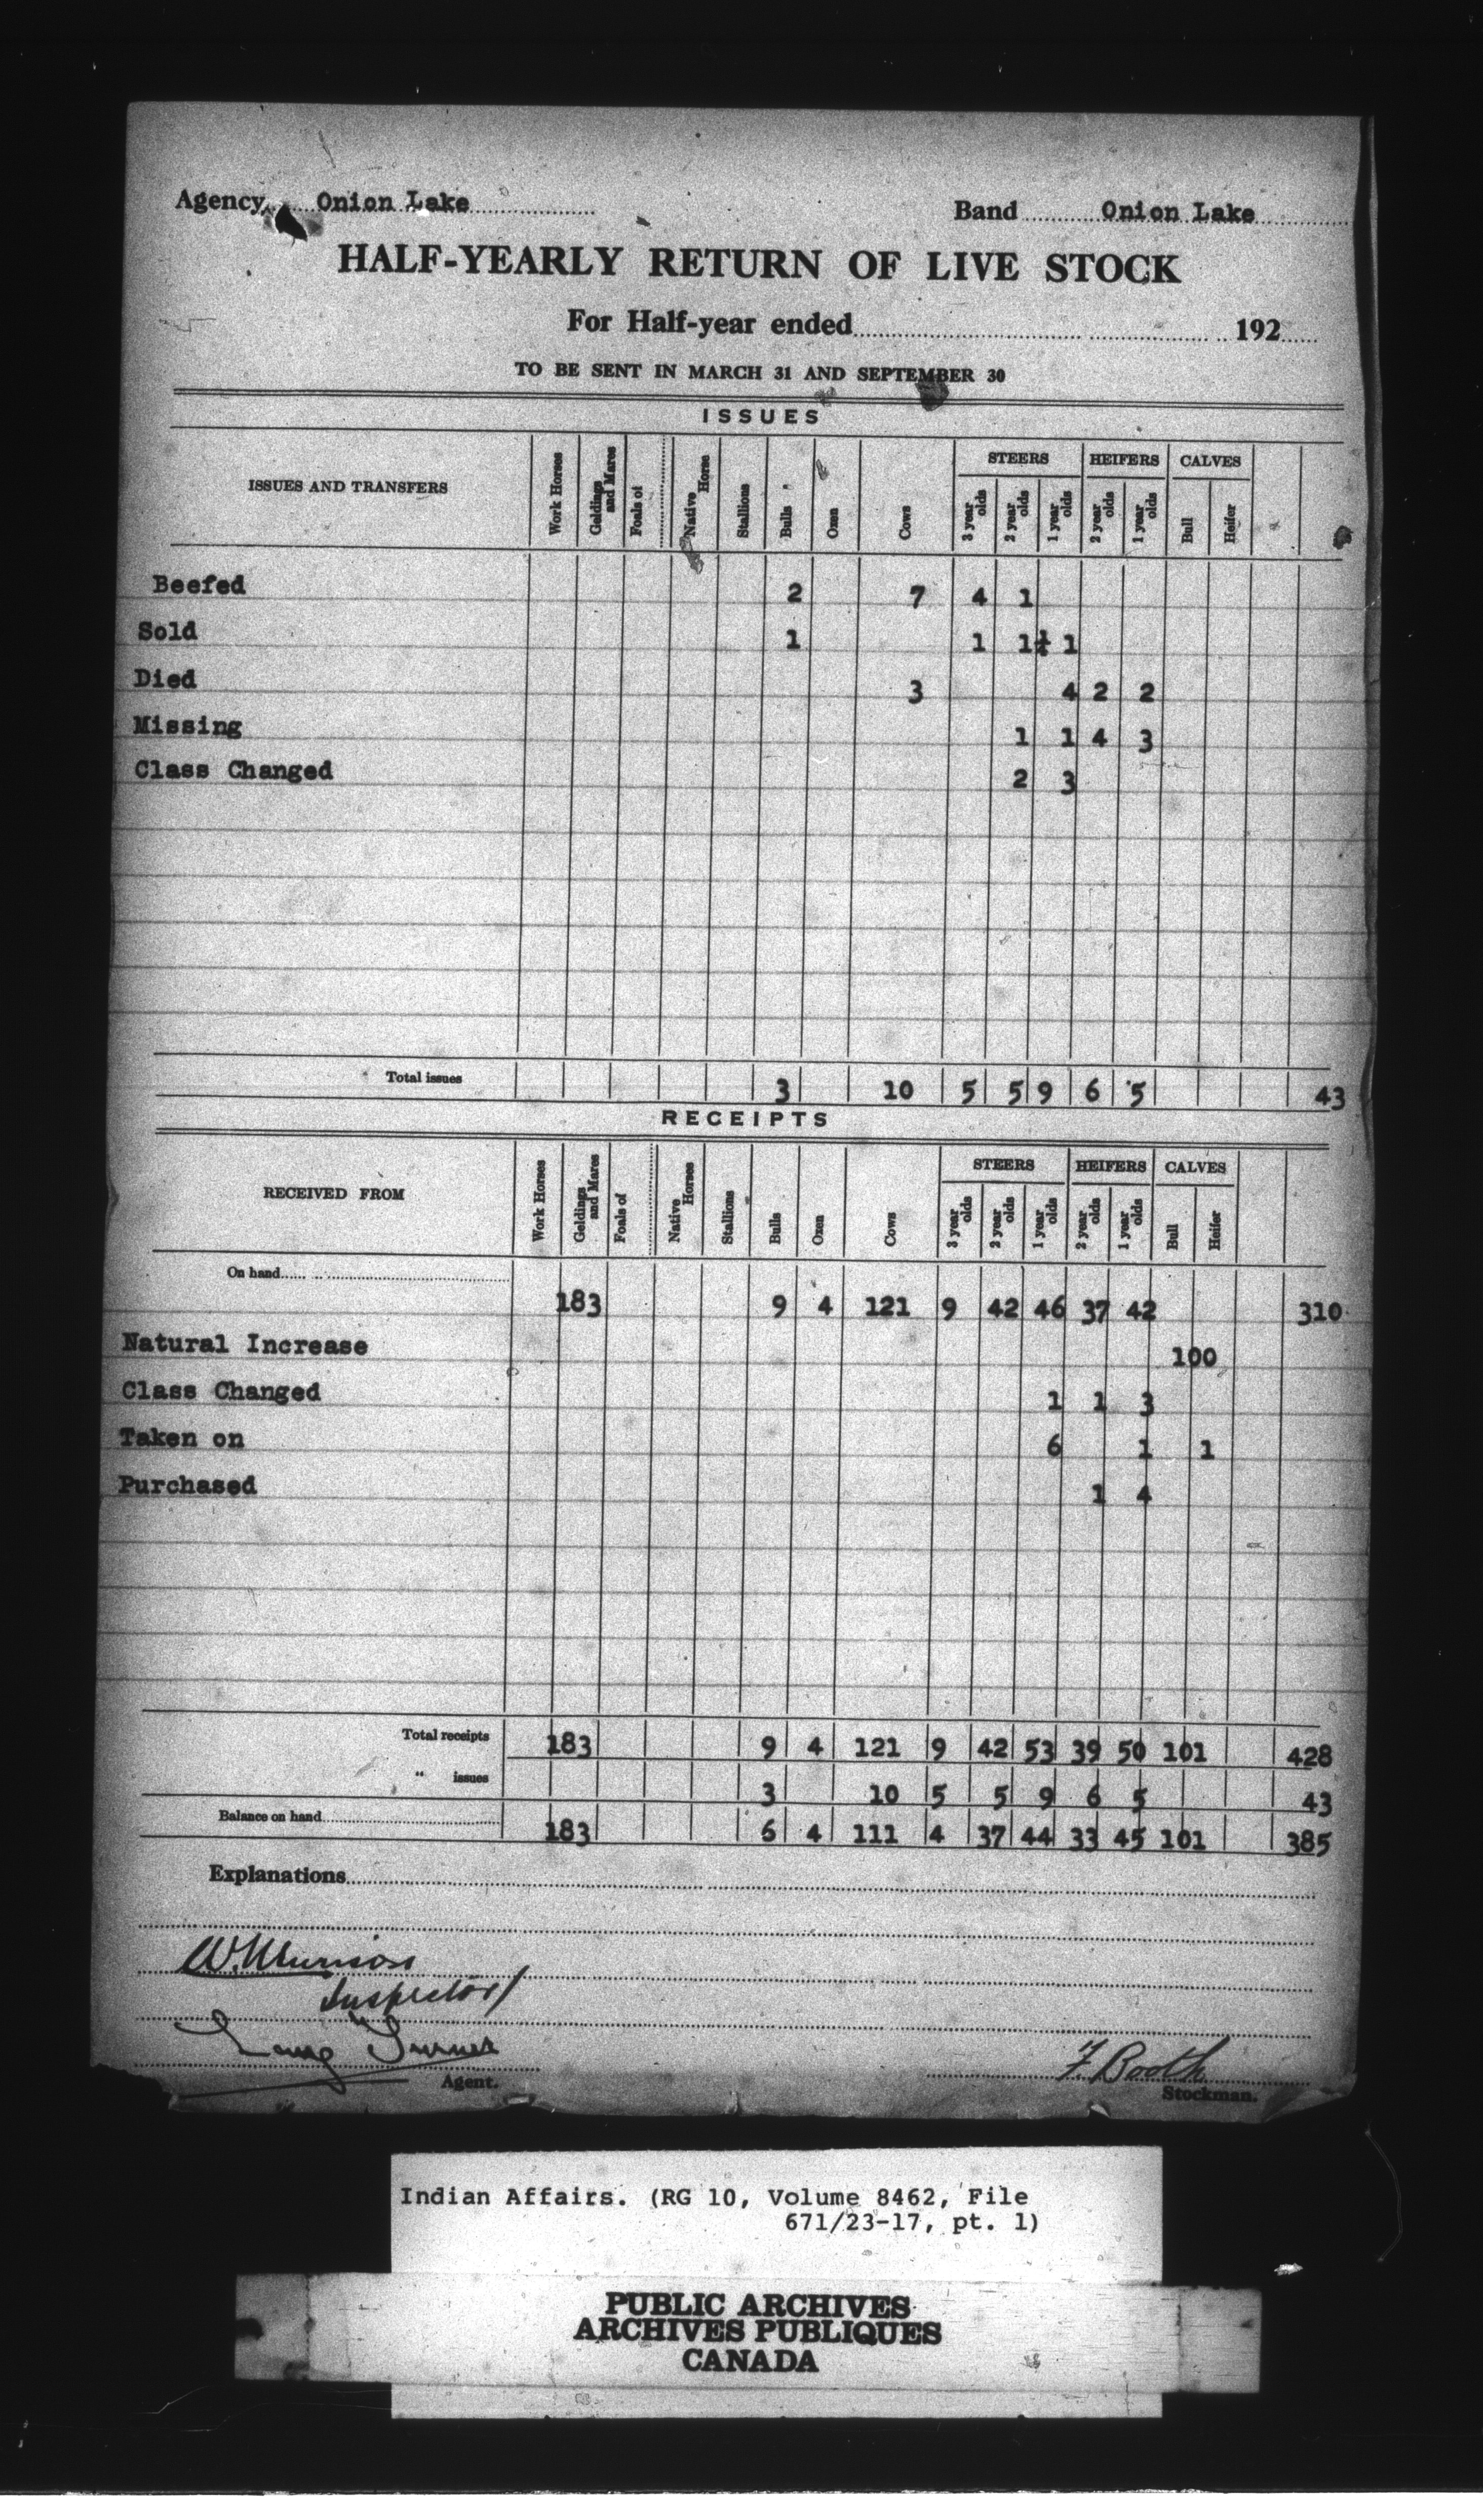 Agency Onion Lake Band Onion Lake
HALF-YEARLY RETURN OF LIVE STOCK
For Half-year ended 192
TO BE SENT IN MARCH 31 AND SEPTEMBER 30
ISSUES
ISSUES AND TRANSFERS Work Horses Geldings and Mares Foals of Native Horse Stallions Bulls Oxen Cows STEERS 3 year olds 2 year olds 1 year olds HEIFERS 2 year olds 1 year olds CALVES Bull Heifer
Beefed 2 7 4 1
Sold 1 1 1 1
Died 3 4 2 2
Missing 1 1 4 3
Class Changed 2 3
Total issues 3 10 5 5 9 6 5 43
RECEIPTS
RECEIVED FROM Work Horses Geldings and Mares Foals of Native Horses Stallions Bulls Oxen Cows STEERS 3 year olds 2 year olds 1 year olds HEIFERS 2 year olds 1 year olds CALVES Bull Heifer
On hand
183 9 4 121 9 42 46 37 42 310
Natural Increase 100
Class Changed 1 1 3
Taken on 6 1 1
Purchased 1 4
Total receipts 183 9 4 121 9 42 53 39 50 101 428
" issues 3 10 5 5 9 6 5 43
Balance on hand 183 6 4 111 4 37 44 33 45 101 385
Explanations
W. Murison
Inspector
Turner
F. Booth
Agent.
Stockman.
Indian Affairs. (RG 10, Volume 8462, File
671/23-17, pt. 1)
PUBLIC ARCHIVES
ARCHIVES PUBLIQUES
CANADA